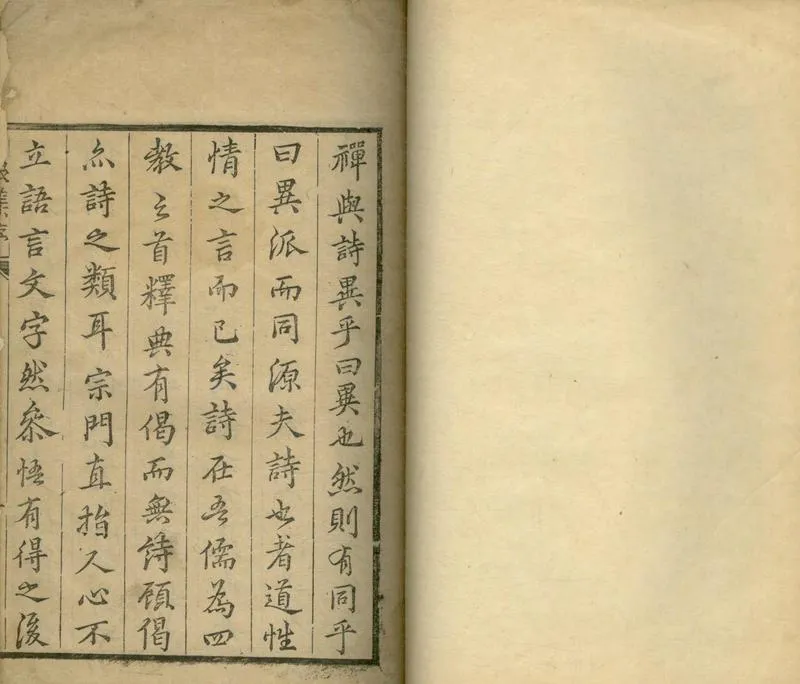 禪與詩異乎曰異也然則有同乎
曰異派而同源夫詩也者道性
情之言而已矣詩在吾儒為四
教之首釋典有偈而無詩顧偈
亦詩之類耳宗門直指人心不
立語言文字然叅悟有得之後
集序